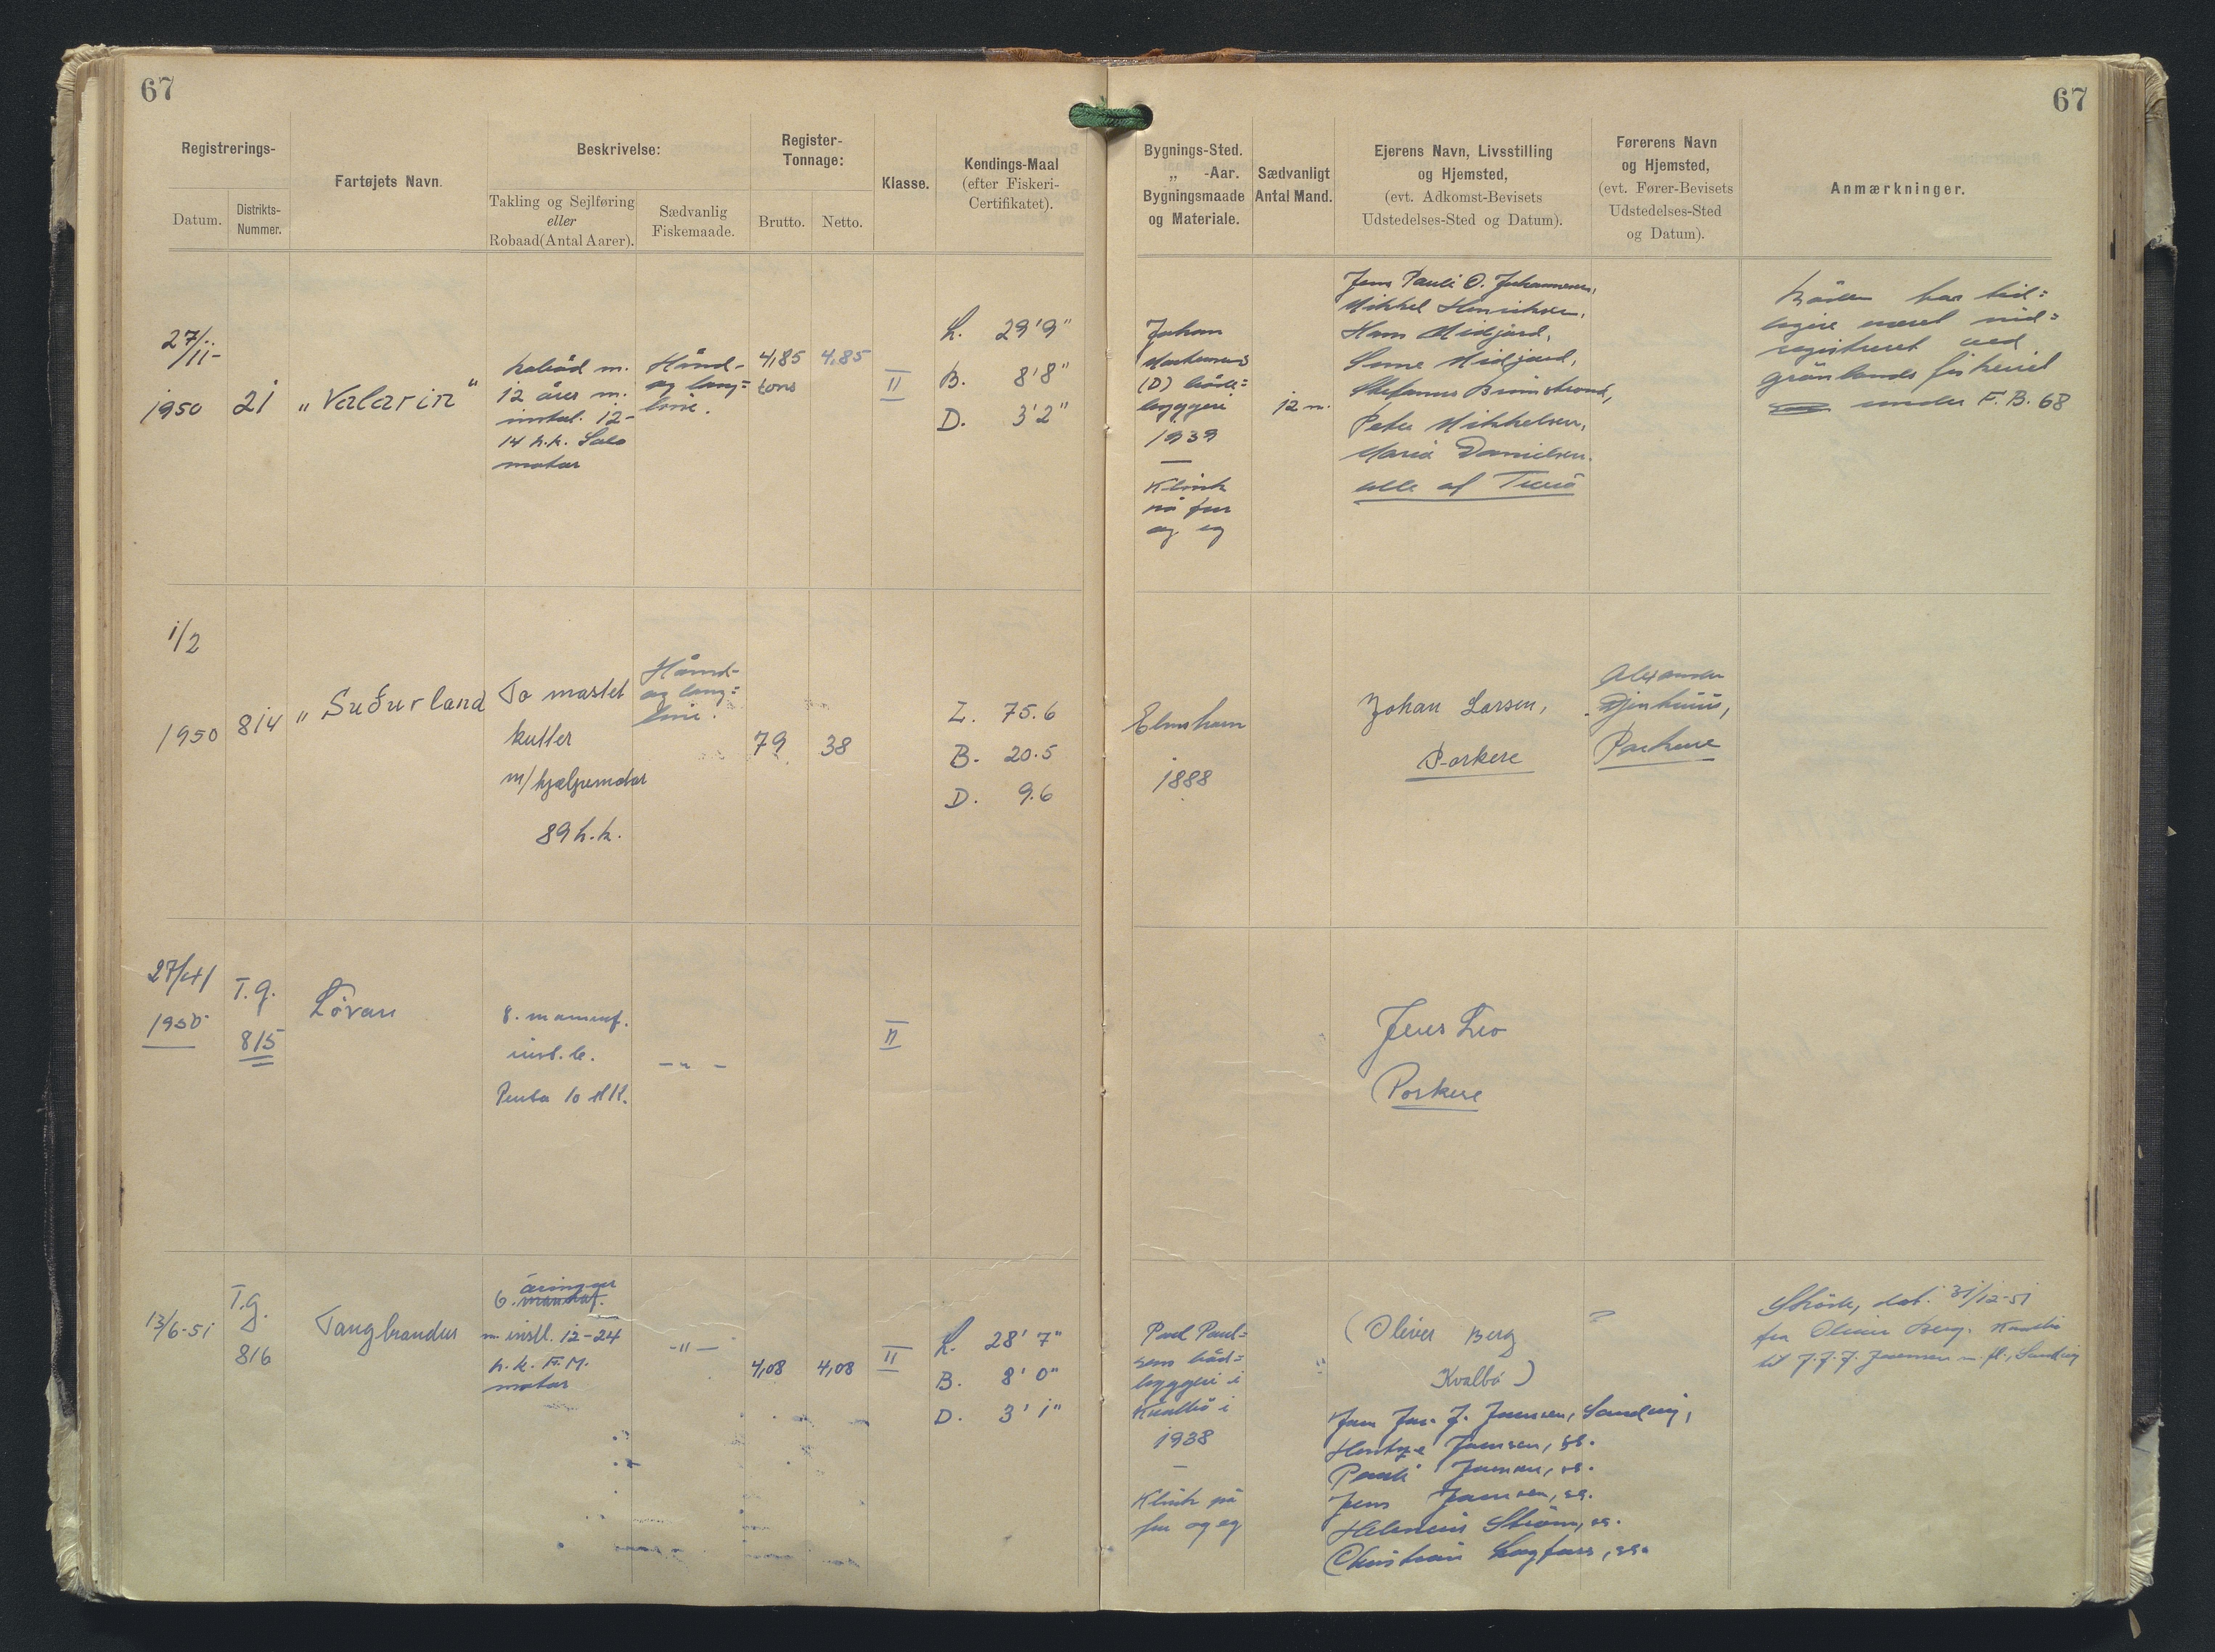 67
67
Registrerings-
Datum.
Distrikts-
Nummer.
Fartøjets Navn.
Beskrivelse:
Takling og Sejlføring
eller
Robaad(Antal Aarer).
Sædvanlig
Fiskemaade.
Register-
Tonnage:
Brutto.
Netto.
Klasse.
Kendings-Maal
(efter Fiskeri-
Certifikatet).
Bygnings-Sted.
„ -Aar.
Bygningsmaade
og Materiale.
Sædvanligt
Antal Mand.
Ejerens Navn, Livsstilling
og Hjemsted,
(evt. Adkomst-Bevisets
Udstedelses-Sted og Datum).
Førerens Navn
og Hjemsted,
(evt. Fører-Bevisets
Udstedelses-Sted
og Datum).
Anmærkninger.
27/11-
1950
21
„Valarin"
m.
12 åres m.
instal. 12-
14 h.k. Solo
motor
Hånd-
og lang=
line.
4,85
tons
4,85
II
L. 29'9"
B. 8'8"
D. 3'2"
Johan
(D) både=
byggeri
1939
—
Klink
på fur
og eg
12 m.
Jens Pauli O. Johannesen,
Mikkel Henriksen,
Hans Midjord,
Sune Midjord,
Stefanus Brimstrond,
Peter Mikkelsen,
Maria Danielsen.
alle af
Båden har tid=
ligere været ind=
registreret ved
grønlands fiskeriet
under F.B. 68
1/2
1950
814
„Suðurland
To mastet
kutter
m/hjælpemotor
89 h.k.
Hånd-
og lang=
line.
79
38
L. 75.6
B. 20.5
D. 9.6
Elmshorn
1888
Johan Larsen,
Porkere
Alexander
Porkere
27/4
1950
T.G.
815
8. mannaf.
inst. b.
Penta 10 HK.
— „ —
II
Jens Leo
Porkere
13/6-51
T.G.
816
Tangbrandur
6. åringur
mannaf.
m. instl. 12-24
h.k. F.M.
motor
-"-
4,08
4,08
II
L. 28' 7"
B. 8' 0"
D. 3' 1"
Poul Poul=
sens båd=
byggeri i
Kvalbø i
1938
—
Klink på
fur og eg
(Oliver Berg
Kvalbø)
Joensen, Sandvig,
Joensen, ss.
Pauli Joensen, ss.
Jens Joensen, ss.
Strøm, ss.
Christian ss.
?
Skøde, dat. 31/12-51
fra Oliver Berg, Kvalbø
til J.J.J. Joensen m. fl., Sandvig